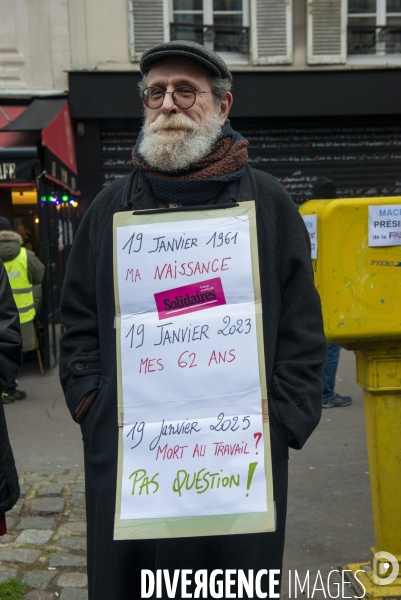 19 JANVIER 1961
MA NAISSANCE
Solidaires
19 JANVIER 2023
MES 62 ANS
19 Janvier 2025
MORT AU TRAVAIL ?
PAS QUESTION !
CAFE
DIVERGENCE IMAGES